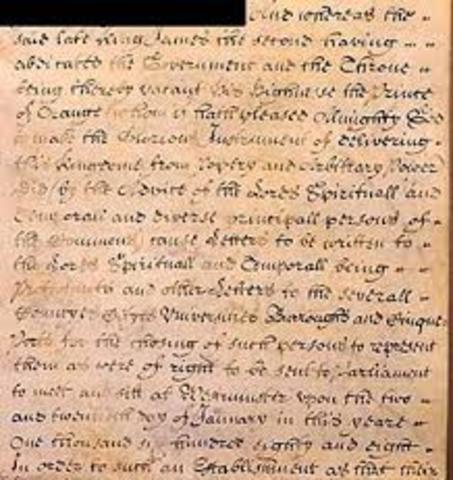 And whereas the
said late King James the second having
abdicated the Government and the Throne
being thereby vacant His Highnesse the Prince
of Orange (whom it hath pleased Almighty God
to make the Glorious Instrument of delivering
this Kingdome from Popery and Arbitrary Power
did (by the Advice of the Lords Spirituall and
Temporall and diverse principall persons of
the Commons) cause Letters to be written to
the Lords Spirituall and Temporall being
Protestants and other Letters to the severall
Countyes Cityes Universities Burroughs and Cinque
Ports for the chosing of such persons to represent
them as were of right to be sent to Parliament
to meet and sitt at Westminster upon the two
and twentieth day of January in this yeare
One thousand six hundred eighty and eight
In order to such an Establishment as that their